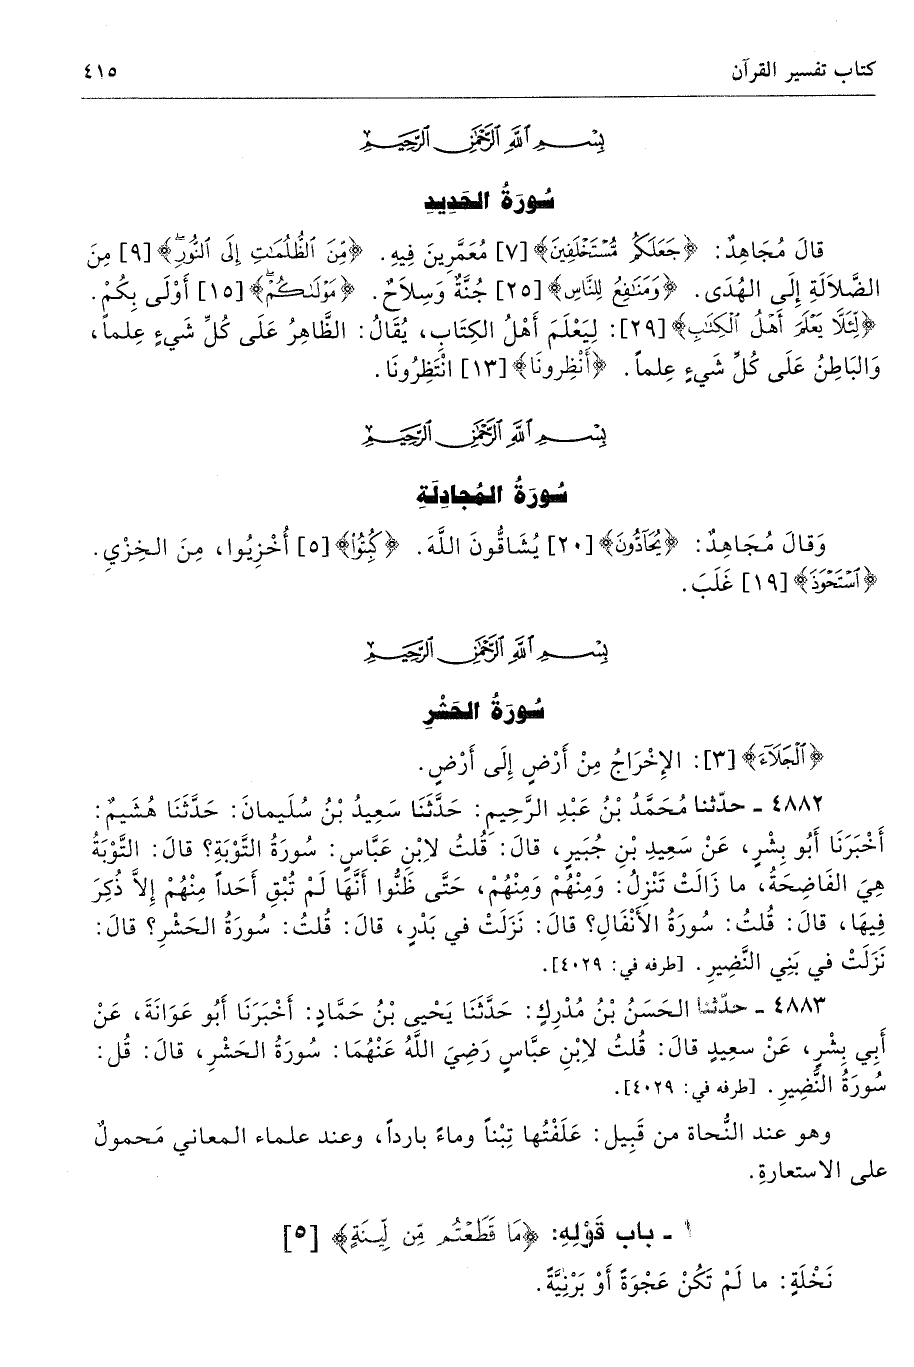 كتاب تفسير القرآن ٤١٥
بِسْمِ ٱللَّهِ ٱلرَّحْمَٰنِ ٱلرَّحِيمِ
سُورَةُ الحَدِيدِ
قالَ مُجَاهِدٌ: ﴿جَعَلَكُم مُّسْتَخْلَفِينَ﴾ [٧] مُعَمَّرِينَ فِيهِ. ﴿مِّنَ ٱلظُّلُمَٰتِ إِلَى ٱلنُّورِۚ﴾ [٩] مِنَ
الضَّلاَلَةِ إِلَى الهُدَى. ﴿وَمَنَٰفِعُ لِلنَّاسِ﴾ [٢٥] جُنَّةٌ وَسِلاَحٌ. ﴿مَوْلَىٰكُمْۖ﴾ [١٥] أَوْلَى بِكُمْ.
﴿لِّئَلَّا يَعْلَمَ أَهْلُ ٱلْكِتَٰبِ﴾ [٢٩]: لِيَعْلَمَ أَهْلُ الكِتَابِ، يُقَالُ: الظَّاهِرُ عَلَى كُلِّ شَيءٍ عِلماً،
وَالبَاطِنُ عَلَى كُلِّ شَيءٍ عِلماً. ﴿أَنْظِرُونَا﴾ [١٣] انْتَظِرُونَا.
بِسْمِ ٱللَّهِ ٱلرَّحْمَٰنِ ٱلرَّحِيمِ
سُورَةُ المُجادِلَةِ
وَقالَ مُجَاهِدٌ: ﴿يُحَآدُّونَ﴾ [٢٠] يُشَاقُّونَ اللَّهَ. ﴿كُبِتُوا۟﴾ [٥] أُخْزِيُوا، مِنَ الخِزْيِ.
﴿ٱسْتَحْوَذَ﴾ [١٩] غَلَبَ.
بِسْمِ ٱللَّهِ ٱلرَّحْمَٰنِ ٱلرَّحِيمِ
سُورَةُ الحَشْرِ
﴿ٱلْجَلَآءَ﴾ [٣]: الإِخْرَاجُ مِنْ أَرْضٍ إِلَى أَرْضٍ.
٤٨٨٢ ـ حدّثنا مُحَمَّدُ بْنُ عَبْدِ الرَّحِيمِ: حَدَّثَنَا سَعِيدُ بْنُ سُلَيمانَ: حَدَّثَنَا هُشَيمٌ:
أَخْبَرَنَا أَبُو بِشْرٍ، عَنْ سَعِيدِ بْنِ جُبَيرٍ، قالَ: قُلتُ لاِبْنِ عَبَّاسٍ: سُورَةُ التَّوْبَةِ؟ قالَ: التَّوْبَةُ
هِيَ الفَاضِحَةُ، ما زَالَتْ تَنْزِلُ: وَمِنْهُمْ وَمِنْهُمْ، حَتَّى ظَنُّوا أَنَّهَا لَمْ تُبْقِ أَحَداً مِنْهُمْ إِلاَّ ذُكِرَ
فِيهَا، قالَ: قُلتُ: سُورَةُ الأَنْفَالِ؟ قالَ: نَزَلَتْ في بَدْرٍ، قالَ: قُلتُ: سُورَةُ الحَشْرِ؟ قالَ:
نَزَلَتْ في بَنِي النَّضِيرِ. [طرفه في: ٤٠٢٩].
٤٨٨٣ ـ حدّثنا الحَسَنُ بْنُ مُدْرِكٍ: حَدَّثَنَا يَحْيى بْنُ حَمَّادٍ: أَخْبَرَنَا أَبُو عَوَانَةَ، عَنْ
أَبِي بِشْرٍ، عَنْ سعِيدٍ قالَ: قُلتُ لاِبْنِ عبَّاسٍ رَضِيَ اللَّهُ عَنْهُمَا: سُورَةُ الحَشْرِ، قالَ: قُل:
سُورَةُ النَّضِيرِ. [طرفه في: ٤٠٢٩].
وهو عند النُّحاة من قَبِيل: عَلَفْتُها تِبْناً وماءً بارداً، وعند علماء المعاني مَحمولٌ
على الاستعارةِ.
١ ـ باب قَوْلِهِ: ﴿مَا قَطَعْتُم مِّن لِّينَةٍ﴾ [٥]
نَخْلَةٍ: ما لَمْ تَكُنْ عَجْوَةً أَوْ بَرْنِيَّةً.